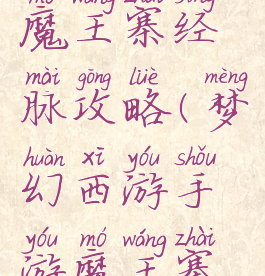 mó wáng zhài jīng
魔王寨经
mài gōng lüè mèng
脉攻略(梦
huàn xī yóu shǒu
幻西游手
yóu mó wáng zhài
游魔王寨